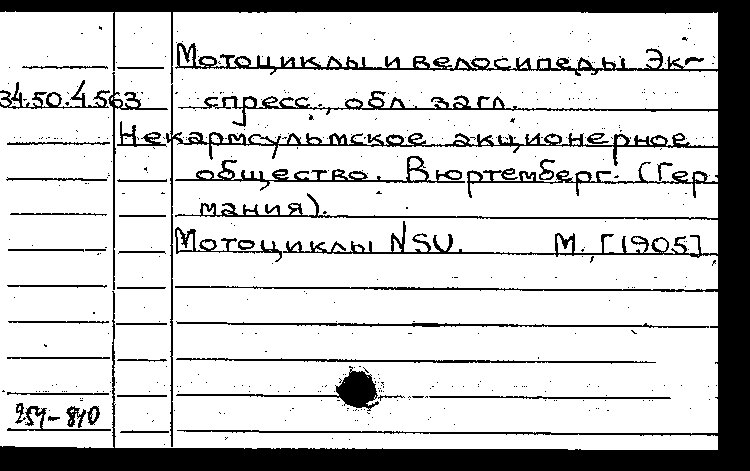 Мотоциклы и велосипеды Эк-
34.50.4.563 спресс., обл. загл.
Некарсмульмское акционерное
общество. Вюртемберг. (Гер-
мания).
Мотоциклы NSU. М., [1905]
254-840